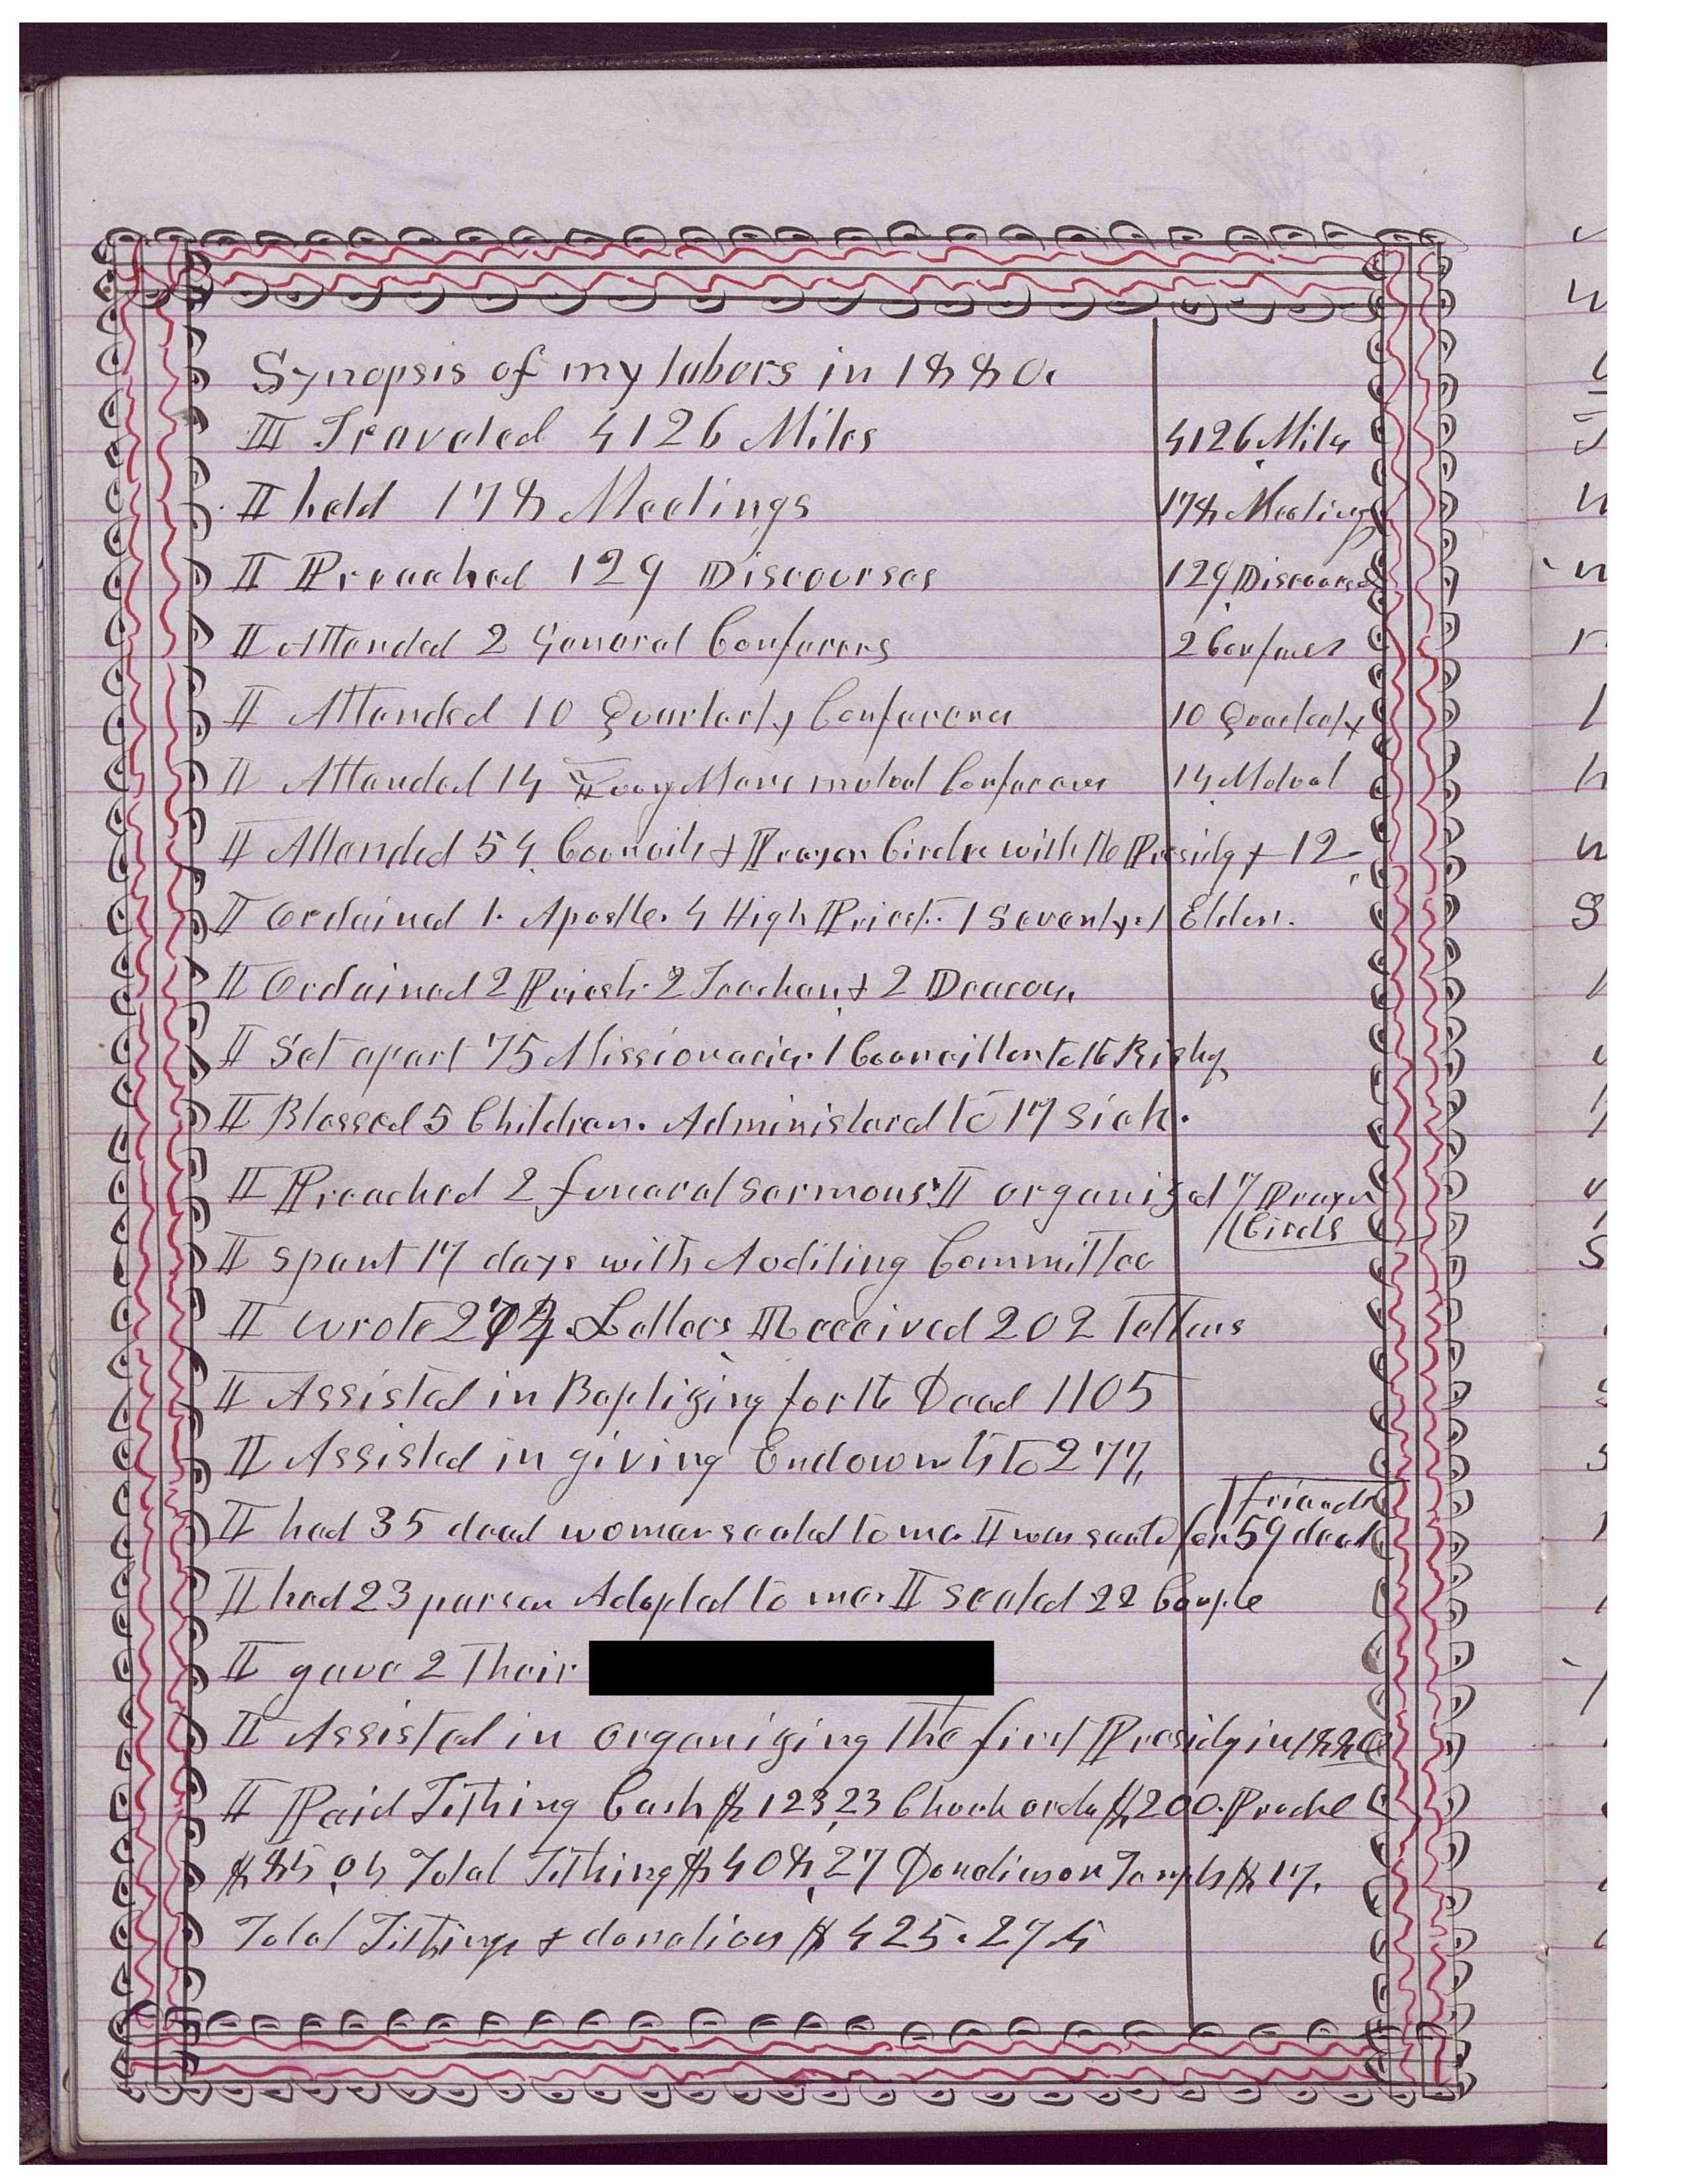 Synopsis of my labors in 1880.
I Traveled 4126 Miles 4126 Miles
I held 178 Meetings 178 Meetings
I Preached 129 Discourses 129 Discourses
I Attended 2 General Conferens 2 Confners
I Attended 10 Quarterly Conferences 10 Quarterly
I Attended 14 Mens mutual Conferences 14 Mutual
I Attended 54 Councils & Prayer Circles with the Presidy & 12
I Ordained 1. Apostle. 4 High Priest. 1 Seventy. 1 Elder.
I Ordained 2 Priests. 2 Teachers & 2 Deacons
I Set apart 75 Missionaries. 1 Councillor to the Bishop
I Blessed 5 Children. Administered to 17 Sick.
I Preached 2 funeral sermons. I organized 7 Prayer
Circls
I spent 17 days with Auditing Committee
I wrote Letters I Received 202 letters
I Assisted in Baptizing for the Dead 1105
I Assisted in giving Endowmts to 277,
friends
I had 35 dead women sealed to me. I was sealed for 59 dead
I had 23 person Adopted to me. I sealed 22 Couple
I gave 2 Their
I Assisted in organizing the first Presidy in 1880
I Paid Tithing Cash $123,23 Check orders $200. Produce
$85,04 Total Tithing $408,27 Donations on Temple $17.
Total Tithing & donations $425.27.